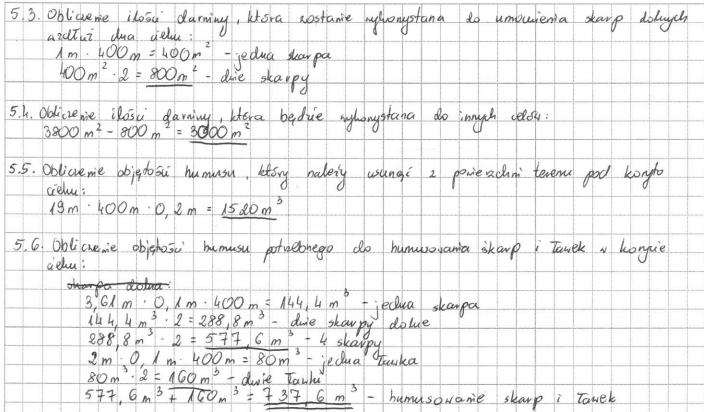 5.3. Obliczenie ilości darniny, która zostanie wykorzystana do umocnienia skarp dolnych
wzdłuż dna cieku:
1m · 400m = 400m² - jedna skarpa
400m² · 2 = 800m² - dwie skarpy
5.4. Obliczenie ilości darniny, która będzie wykorzystana do innych celów:
3800m² - 800m² = 3000m²
5.5. Obliczenie objętości humusu, który należy usunąć z powierzchni terenu pod koryto
cieku:
19m · 400m · 0,2m = 1520m³
5.6. Obliczenie objętości humusu potrzebnego do humusowania skarp i ławek w korycie
cieku:
skarpa dolna:
3,61m · 0,1m · 400m = 144,4m³ - jedna skarpa
144,4m³ · 2 = 288,8m³ - dwie skarpy dolne
288,8m³ · 2 = 577,6m³ - 4 skarpy
2m · 0,1m · 400m = 80m³ - jedna ławka
80m³ · 2 = 160m³ - dwie ławki
577,6m³ + 160m³ = 737,6m³ - humusowanie skarp i ławek